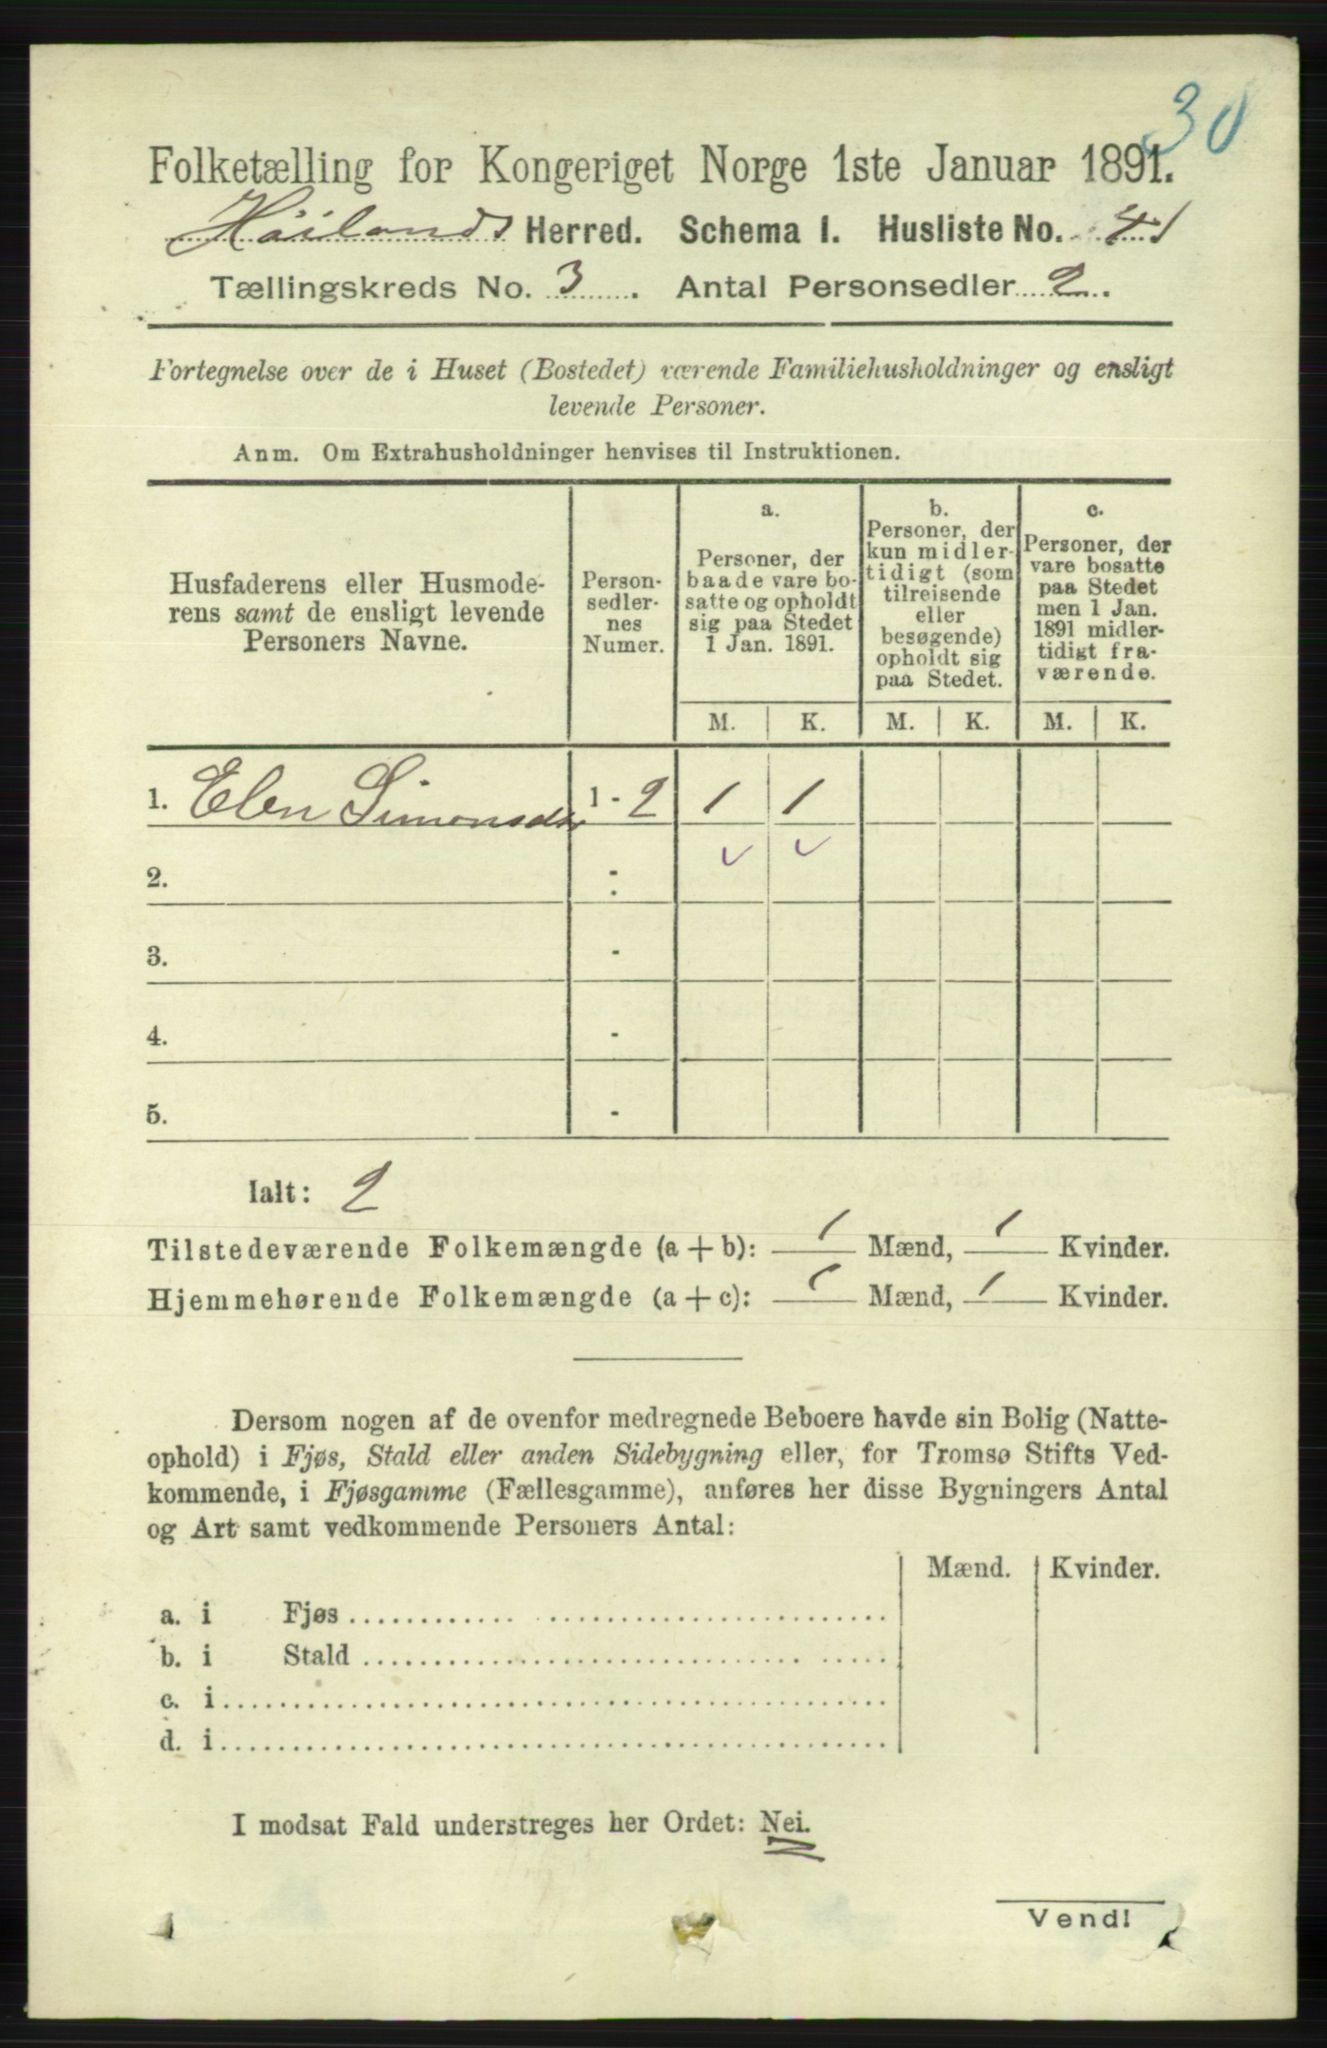 30
Folketælling for Kongeriget Norge 1ste Januar 1891.
Höilands Herred. Schema I. Husliste No. 41
Tællingskreds No. 3. Antal Personsedler 2.
Fortegnelse over de i Huset (Bostedet) værende Familiehusholdninger og ensligt
levende Personer.
Anm. Om Extrahusholdninger henvises til Instruktionen.
Husfaderens eller Husmode-
rens samt de ensligt levende
Personers Navne.
Person-
sedler-
nes
Numer.
a.
Personer, der
baade vare bo-
satte og opholdt
sig paa Stedet
1 Jan. 1891.
b.
Personer, der
kun midler-
tidigt (som
tilreisende
eller
besøgende)
opholdt sig
paa Stedet.
c.
Personer, der
vare bosatte
paa Stedet
men 1 Jan.
1891 midler-
tidigt fra-
værende.
M. K. M. K. M. K.
1. Elen Simonsdtr 1 - 2 1 1
2. -
3. -
4. -
5. -
Ialt: 2
Tilstedeværende Folkemængde (a + b): 1 Mænd, 1 Kvinder.
Hjemmehørende Folkemængde (a + c): 1 Mænd, 1 Kvinder.
Dersom nogen af de ovenfor medregnede Beboere havde sin Bolig (Natte-
ophold) i Fjøs, Stald eller anden Sidebygning eller, for Tromsø Stifts Ved-
kommende, i Fjøsgamme (Fællesgamme), anføres her disse Bygningers Antal
og Art samt vedkommende Personers Antal:
Mænd. Kvinder.
a. i Fjøs
b. i Stald
c. i
d. i
I modsat Fald understreges her Ordet: Nei.
Vend!